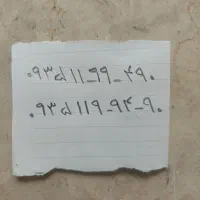 ۰۹۳۵۱۱-۹۹-۴۹۰
۰۹۳۵۱۱۹-۹۴-۹۰